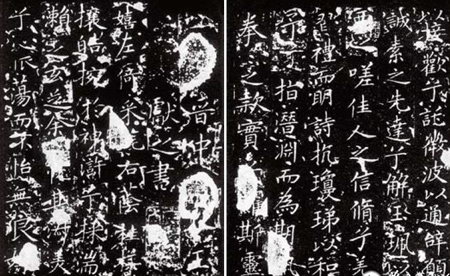 以接歡兮託微波以通辭願
誠素之先達兮解玉珮
之嗟佳人之信脩兮羌
習禮而明詩抗瓊珶以和
予兮指潛淵而為期
拳之款實 斯靈
晉中 王
獻之書
嬉左倚采 右蔭桂旗
攘皓捥於神滸兮采湍
瀨之玄芝 其淑美
兮心振蕩而不怡無良